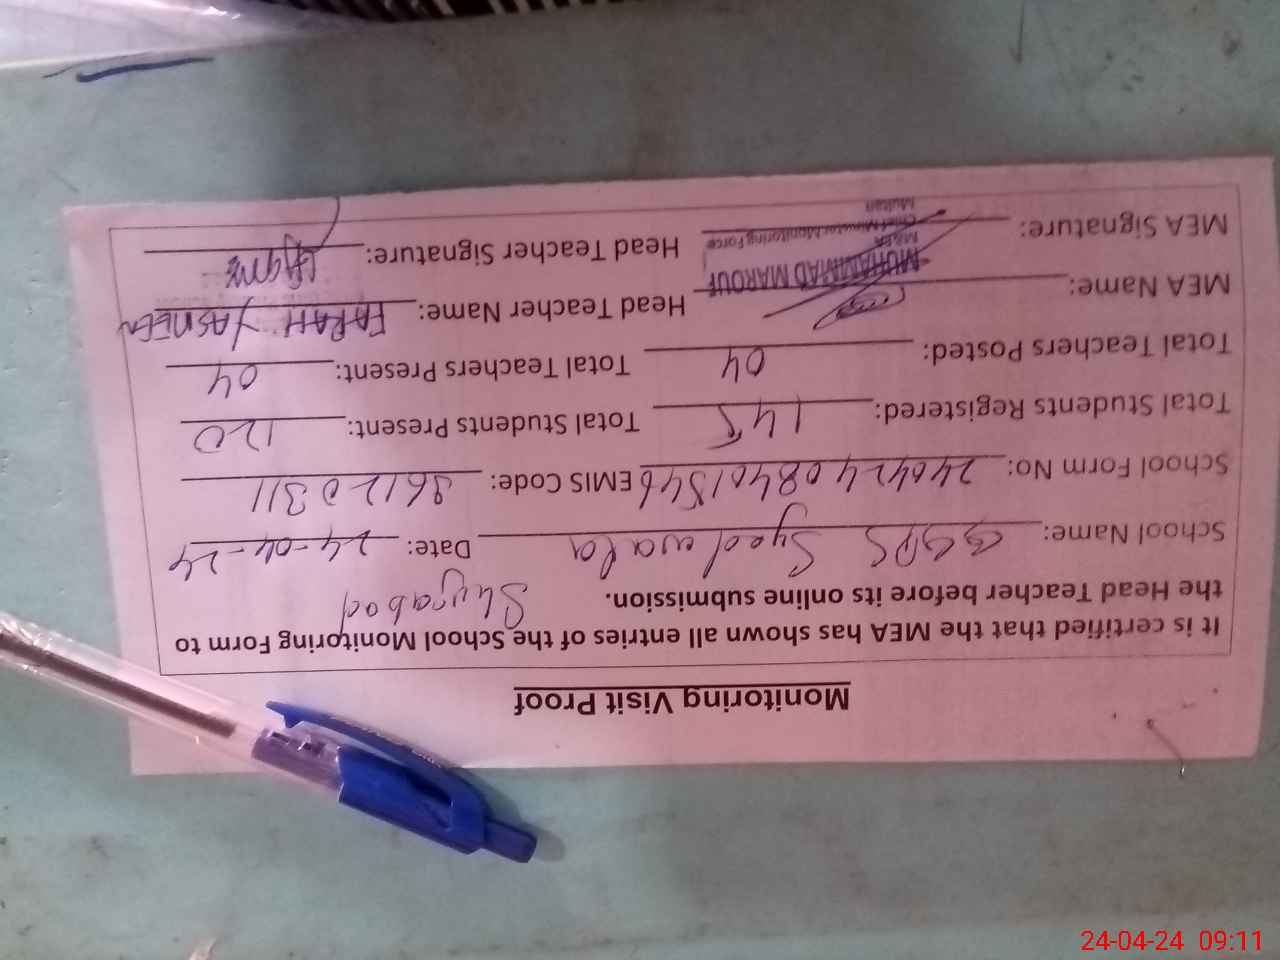 Monitoring Visit Proof
It is certified that the MEA has shown all entries of the School Monitoring Form to
the Head Teacher before its online submission. Shujabad
School Name: GGPS Syedwala Date: 24-04-24
School Form No: 24042408401546 EMIS Code: 36120311
Total Students Registered: 145 Total Students Present: 120
Total Teachers Posted: 04 Total Teachers Present: 04
MEA Name: MUHAMMAD MAROUF Head Teacher Name: FARAH YASMEEN
M&EA
MEA Signature: Chief Minister Monitoring Force Head Teacher Signature:
Multan
24-04-24 09:11